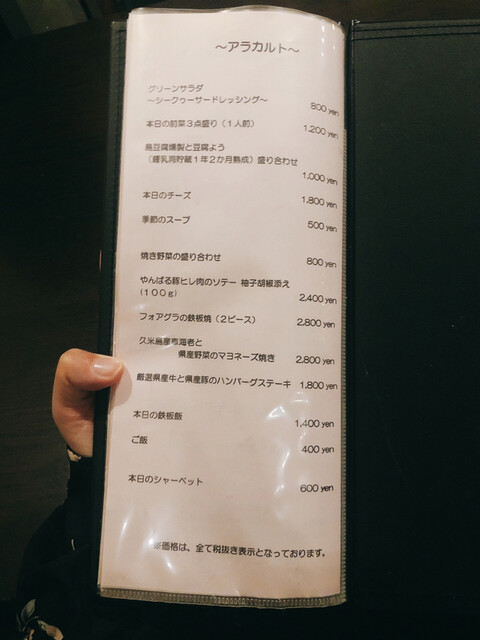 ～アラカルト～
グリーンサラダ
～シークヮーサードレッシング～ 800 yen
本日の前菜３点盛り（１人前） 1,200 yen
島豆腐燻製と豆腐よう
（鍾乳洞貯蔵１年２か月熟成）盛り合わせ 1,000 yen
本日のチーズ 1,800 yen
季節のスープ 500 yen
焼き野菜の盛り合わせ 800 yen
やんばる豚ヒレ肉のソテー 柚子胡椒添え
（１００ｇ） 2,400 yen
フォアグラの鉄板焼（２ピース） 2,800 yen
久米島産車海老と
県産野菜のマヨネーズ焼き 2,800 yen
厳選県産牛と県産豚のハンバーグステーキ 1,800 yen
本日の鉄板飯 1,400 yen
ご飯 400 yen
本日のシャーベット 600 yen
※価格は、全て税抜き表示となっております。